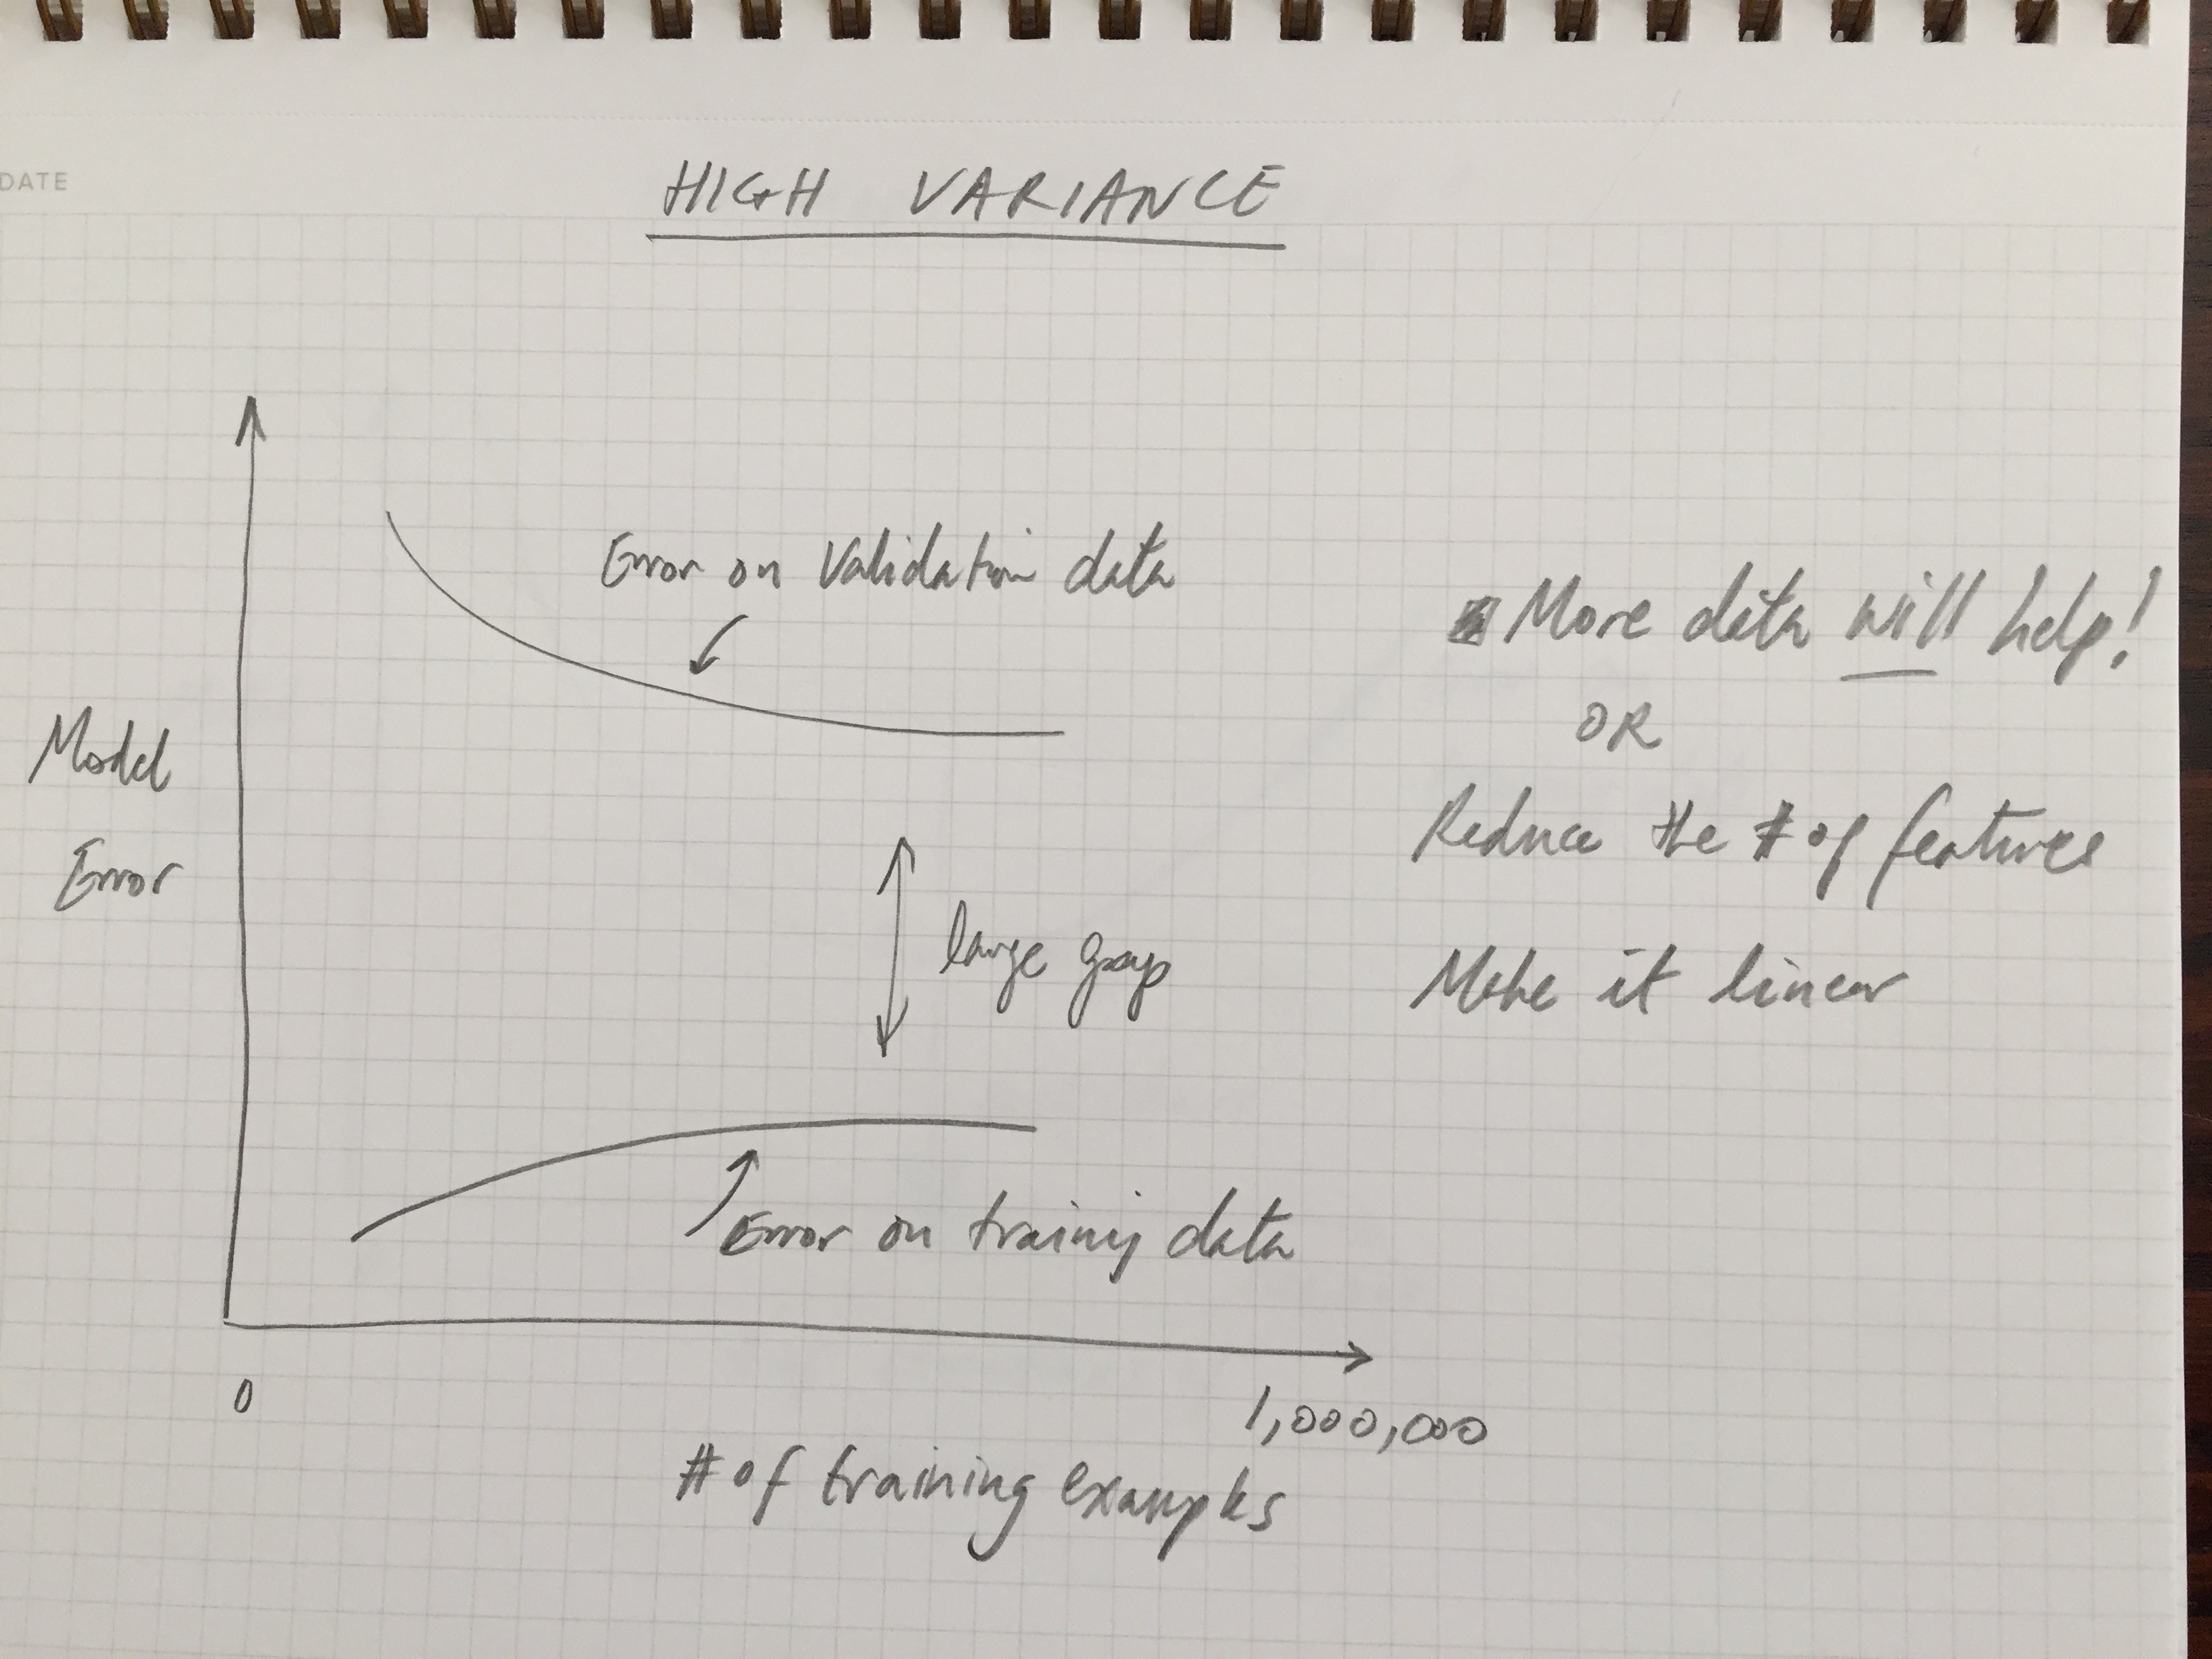 DATE
HIGH VARIANCE
Model
Error
Error on validation data
large gap
Error on training data
0
1,000,000
# of training examples
More data will help!
OR
Reduce the # of features
Make it linear